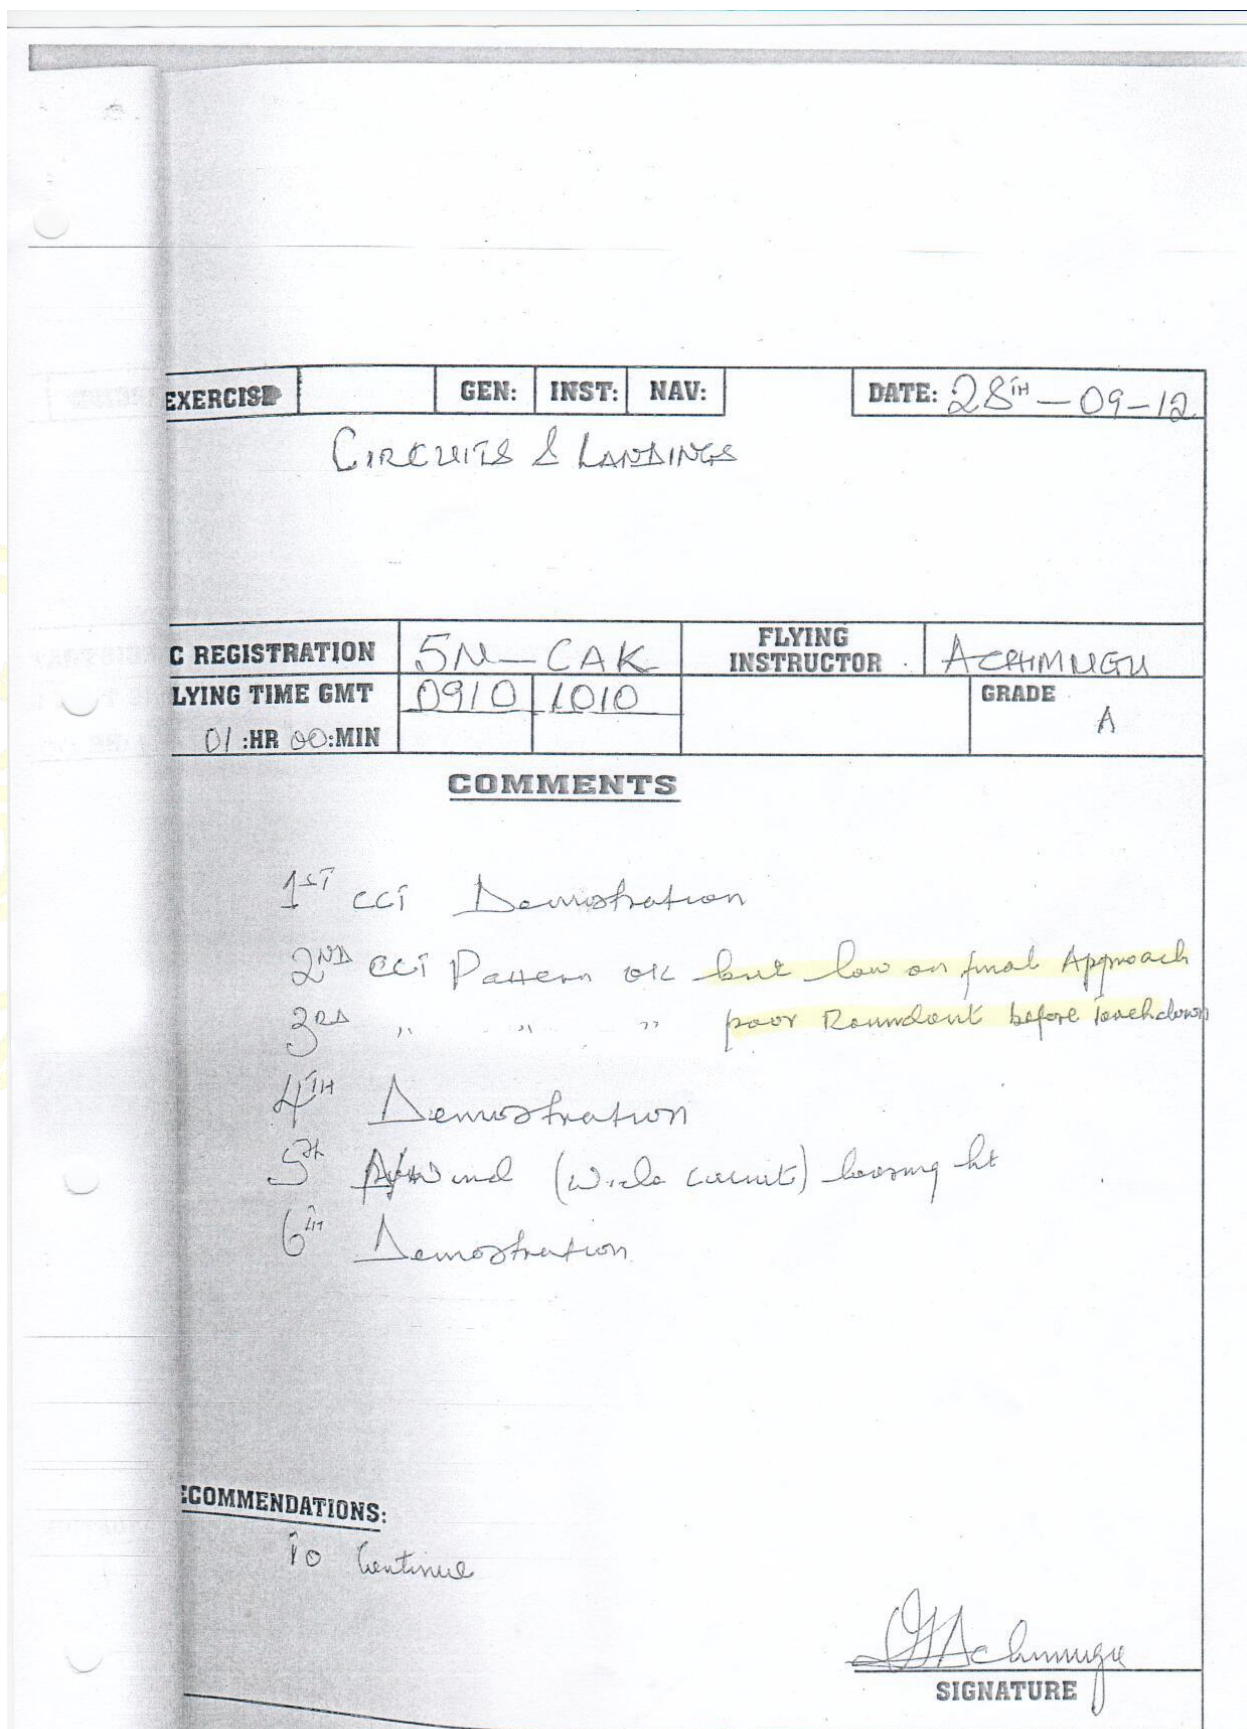 EXERCISE GEN: INST: NAV: DATE: 28TH-09-12
CIRCUITS & LANDINGS
C REGISTRATION 5N-CAK FLYING INSTRUCTOR ACHIMUGU
LYING TIME GMT 0910 1010 GRADE A
01:HR 00:MIN
COMMENTS
1ST CCT Demostration
2ND CCT Pattern OK but low on final Approach
3RD ,, ,, ,, poor Roundout before Touchdown
4TH Demostration
5th wind (wide circuit) loosing ht
6TH Demostration
ECOMMENDATIONS:
To Continue
Achimugu
SIGNATURE